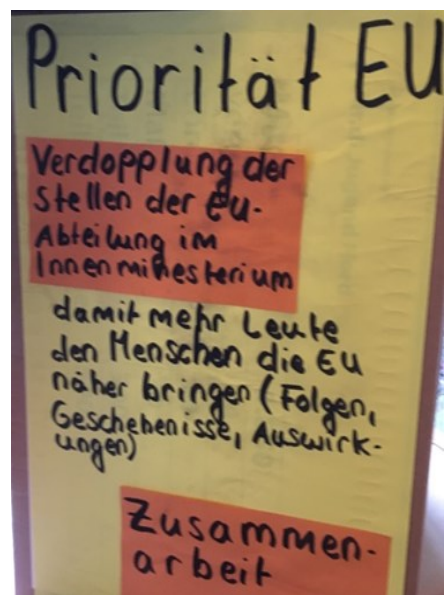 Priorität EU
Verdopplung der
Stellen der EU-
Abteilung im
Innenministerium
damit mehr Leute
den Menschen die EU
näher bringen (Folgen,
Geschehenisse, Auswirk-
ungen)
Zusammen-
arbeit